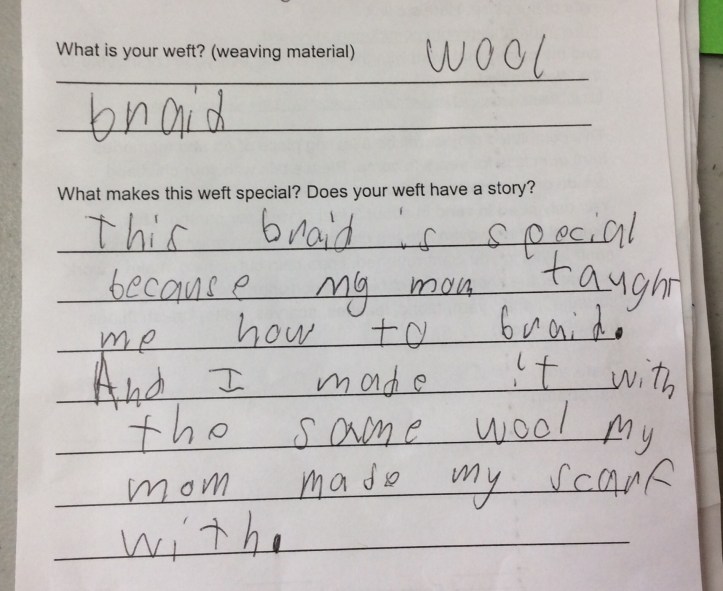 What is your weft? (weaving material) wool
braid
What makes this weft special? Does your weft have a story?
This braid is special
because my mom taught
me how to braid.
And I made it with
the same wool my
mom made my scarf
with.